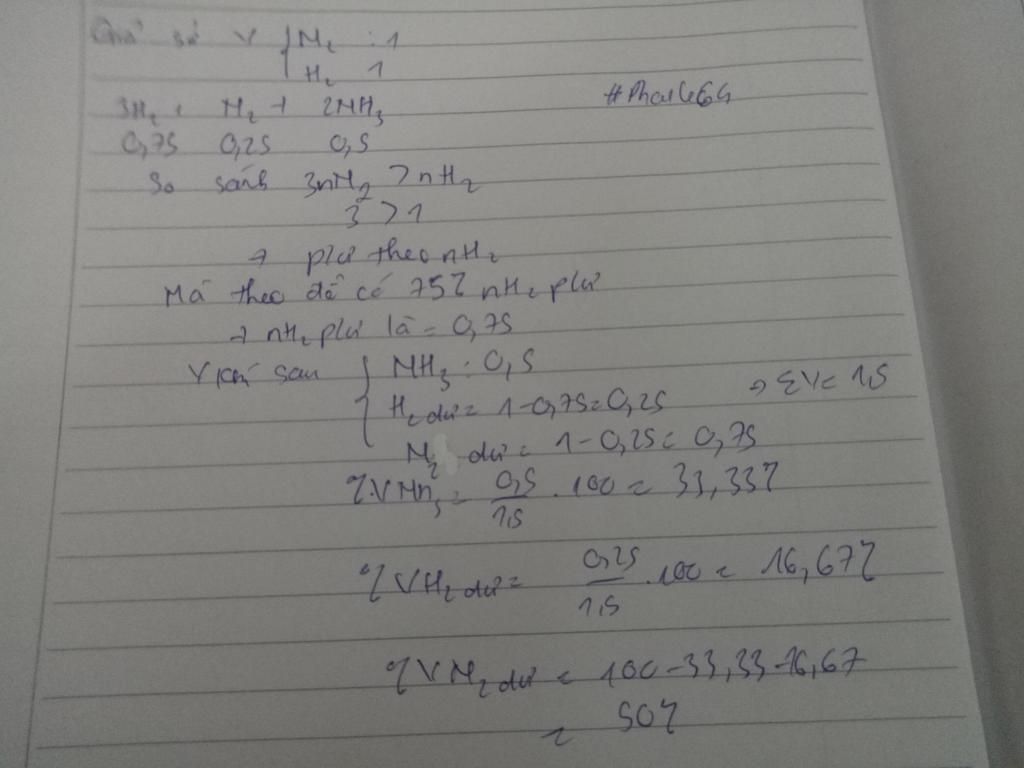 Giả sử V { N2 : 1
H2 1
#Pham464
3H2 + N2 → 2NH3
0,75 0,25 0,5
So sánh 3nN2 > nH2
3 > 1
→ pứ theo nH2
Mà theo đề có 75% nH2 pứ
→ nH2 pứ là = 0,75
V khí sau { NH3 : 0,5
H2 dư = 1-0,75=0,25 → ΣV= 1,5
N2 dư = 1-0,25= 0,75
%VNH3 = 0,5/1,5 . 100 = 33,33%
%VH2 dư = 0,25/1,5 .100 = 16,67%
%VN2 dư = 100-33,33-16,67
= 50%